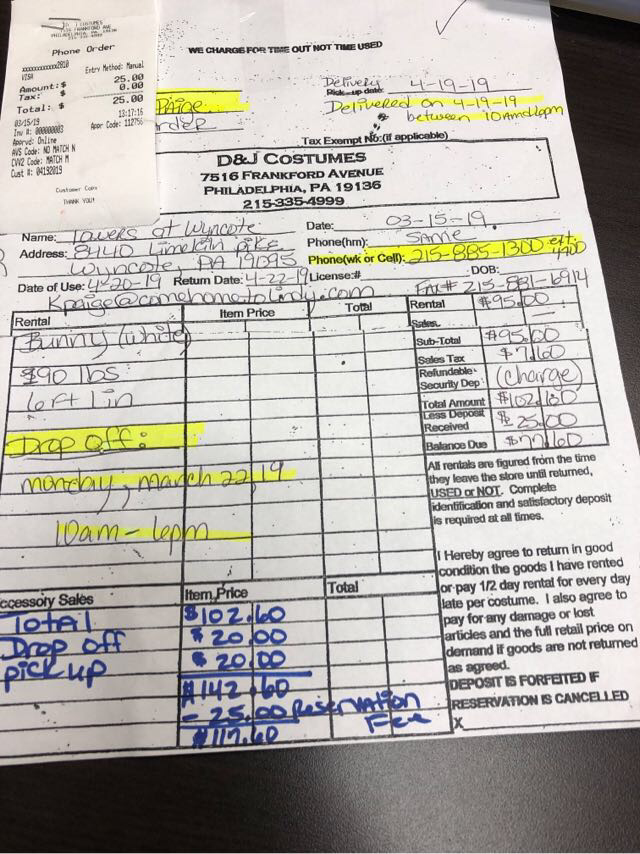 D&J COSTUMES
7516 FRANKFORD AVE
PHILADELPHIA, PA 19136
Phone Order
xxxxxxxxxxxx2010
VISA Entry Method: Manual
Amount: $ 25.00
Tax: $ 0.00
Total: $ 25.00
03/15/19 13:17:16
Inv #: 000000003 Appr Code: 112756
Apprvd: Online
AVS Code: NO MATCH N
CVV2 Code: MATCH M
Cust #: 04192019
Customer Copy
THANK YOU!
WE CHARGE FOR TIME OUT NOT TIME USED
Delivery
Pick-up date: 4-19-19
Paige
Delivered on 4-19-19
order
between 10am
Tax Exempt No:(if applicable)
D&J COSTUMES
7516 FRANKFORD AVENUE
PHILADELPHIA, PA 19136
215-335-4999
Name: Towers at Wyncote Date: 03-15-19
Address: 8440 Limekiln pike Phone(hm): same
Wyncote, PA 19095 Phone(wk or Cell): 215-885-1300 ext.
Date of Use: 4-20-19 Return Date: 4-22-19 License:# DOB:
Kpaige@comehometolindy.com FAX# 215-881-6914
Rental Item Price Total
Rental $95.00
Sales
Sub-Total $95.00
Sales Tax $7.60
Refundable Security Dep (charge)
Total Amount $102.60
Less Deposit Received $25.00
Balance Due $77.60
Bunny (white)
$90 lbs
Drop off:
monday, march 22, 19
10am-6pm
All rentals are figured from the time
they leave the store until returned,
USED or NOT. Complete
identification and satisfactory deposit
is required at all times.
I Hereby agree to return in good
condition the goods I have rented
or pay 1/2 day rental for every day
late per costume. I also agree to
pay for any damage or lost
articles and the full retail price on
demand if goods are not returned
as agreed.
DEPOSIT IS FORFEITED IF
RESERVATION IS CANCELLED
X
ccessory Sales Item Price Total
Total $102.60
Drop off $20.00
pick up $20.00
$142.60
- 25.00 Reservation Fee
$117.60